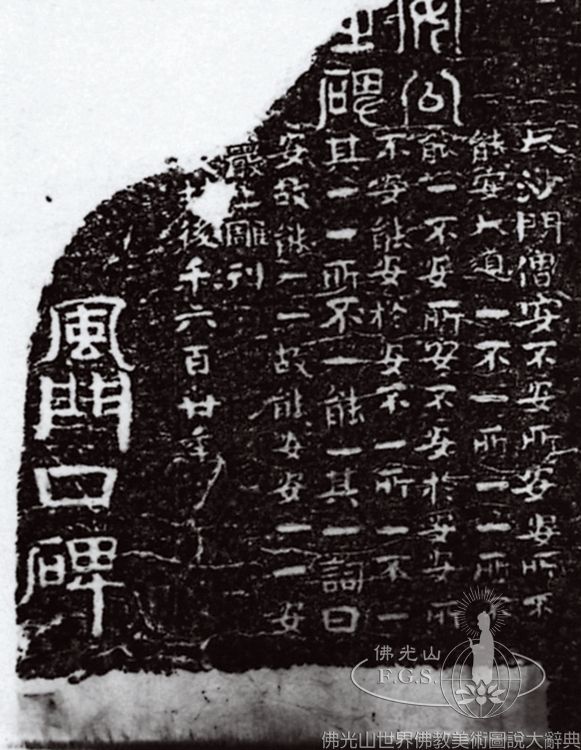 公
碑
大沙門僧安不安所安安所不
能安大道一不一所一一所不
能一不安所安不安於安安所
不安能安於安不一所一不一
其一一所不一能一其一詞曰
安故能一一故能安安一一安
巖上雕刊
後千六百廿年
風門口碑
佛光山
F.G.S.
佛光山世界佛教美術圖說大辭典